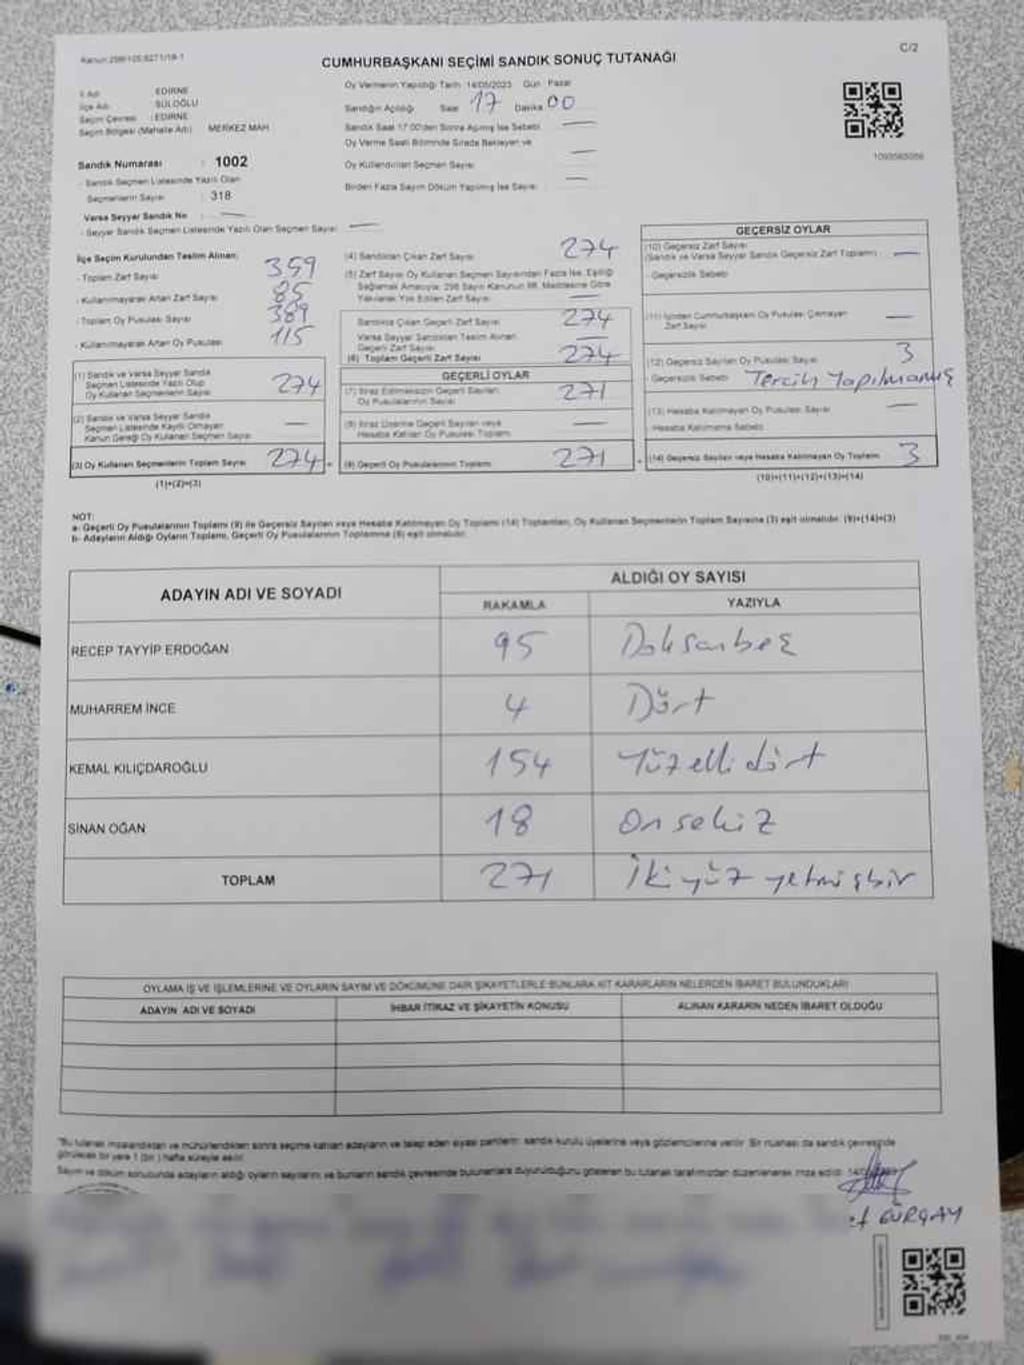 C/2
CUMHURBAŞKANI SEÇİMİ SANDIK SONUÇ TUTANAĞI
İl Adı EDİRNE
İlçe Adı SÜLOĞLU
Seçim Çevresi : EDİRNE
Seçim Bölgesi (Mahalle Adı) MERKEZ MAH
Sandık Numarası : 1002
- Sandık Seçmen Listesinde Yazılı Olan
Seçmenlerin Sayısı : 318
Varsa Seyyar Sandık No : —
- Seyyar Sandık Seçmen Listesinde Yazılı Olan Seçmen Sayısı —
Oy Vermenin Yapıldığı Tarih 14/05/2023 Gün Pazar
Sandığın Açıldığı Saat 17 Dakika 00
Sandık Saat 17:00'den Sonra Açılmış İse Sebebi —
Oy Verme Saati Bitiminde Sırada Bekleyen ve
Oy Kullandırılan Seçmen Sayısı —
Birden Fazla Sayım Döküm Yapılmış İse Sayısı —
İlçe Seçim Kurulundan Teslim Alınan;
- Toplam Zarf Sayısı 359
- Kullanılmayarak Artan Zarf Sayısı 85
- Toplam Oy Pusulası Sayısı 389
- Kullanılmayarak Artan Oy Pusulası 115
(1) Sandık ve Varsa Seyyar Sandık
Seçmen Listesinde Yazılı Olup
Oy Kullanan Seçmenlerin Sayısı 274
(2) Sandık ve Varsa Seyyar Sandık
Seçmen Listesinde Kayıtlı Olmayan
Kanun Gereği Oy Kullanan Seçmen Sayısı —
(3) Oy Kullanan Seçmenlerin Toplam Sayısı 274 =
(1)+(2)=(3)
(4) Sandıktan Çıkan Zarf Sayısı 274
(5) Zarf Sayısı Oy Kullanan Seçmen Sayısından Fazla İse, Eşitliği
Sağlamak Amacıyla; 298 Sayılı Kanunun 98. Maddesine Göre
Yakılarak Yok Edilen Zarf Sayısı —
Sandıkta Çıkan Geçerli Zarf Sayısı 274
Varsa Seyyar Sandıktan Teslim Alınan
Geçerli Zarf Sayısı —
(6) Toplam Geçerli Zarf Sayısı 274
GEÇERLİ OYLAR
(7) İtiraz Edilmeksizin Geçerli Sayılan
Oy Pusulalarının Sayısı 271
(8) İtiraz Üzerine Geçerli Sayılan veya
Hesaba Katılan Oy Pusulası Toplamı —
(9) Geçerli Oy Pusulalarının Toplamı 271 +
GEÇERSİZ OYLAR
(10) Geçersiz Zarf Sayısı
(Sandık ve Varsa Seyyar Sandık Geçersiz Zarf Toplamı) —
- Geçersizlik Sebebi
(11) İçinden Cumhurbaşkanı Oy Pusulası Çıkmayan
Zarf Sayısı —
(12) Geçersiz Sayılan Oy Pusulası Sayısı 3
- Geçersizlik Sebebi Tercih Yapılmamış
(13) Hesaba Katılmayan Oy Pusulası Sayısı —
- Hesaba Katılmama Sebebi
(14) Geçersiz Sayılan veya Hesaba Katılmayan Oy Toplamı 3
(10)+(11)+(12)+(13)=(14)
NOT:
a- Geçerli Oy Pusulalarının Toplamı (9) ile Geçersiz Sayılan veya Hesaba Katılmayan Oy Toplamı (14) Toplamları, Oy Kullanan Seçmenlerin Toplam Sayısına (3) eşit olmalıdır. (9)+(14)=(3)
b- Adayların Aldığı Oyların Toplamı, Geçerli Oy Pusulalarının Toplamına (9) eşit olmalıdır.
ADAYIN ADI VE SOYADI ALDIĞI OY SAYISI
RAKAMLA YAZIYLA
RECEP TAYYİP ERDOĞAN 95 Doksanbeş
MUHARREM İNCE 4 Dört
KEMAL KILIÇDAROĞLU 154 Yüzellidört
SİNAN OĞAN 18 Onsekiz
TOPLAM 271 İkiyüz yetmişbir
OYLAMA İŞ VE İŞLEMLERİNE VE OYLARIN SAYIM VE DÖKÜMÜNE DAİR ŞİKAYETLERLE BUNLARA AİT KARARLARIN NELERDEN İBARET BULUNDUKLARI
ADAYIN ADI VE SOYADI İHBAR İTİRAZ VE ŞİKAYETİN KONUSU ALINAN KARARIN NEDEN İBARET OLDUĞU
*Bu tutanak imzalandıktan ve mühürlendikten sonra seçime katılan adayların ve talep eden siyasi partilerin sandık kurulu üyelerine veya gözlemcilerine verilir. Bir nüshası da sandık çevresinde
görülecek bir yere 1 (bir) hafta süreyle asılır.
Sayım ve döküm sonucunda adayların aldığı oyların sayılarını ve bunların sandık çevresinde bulunanlara duyurulduğunu gösteren bu tutanak tarafımızdan düzenlenerek imza edildi.
GÜRÇAY